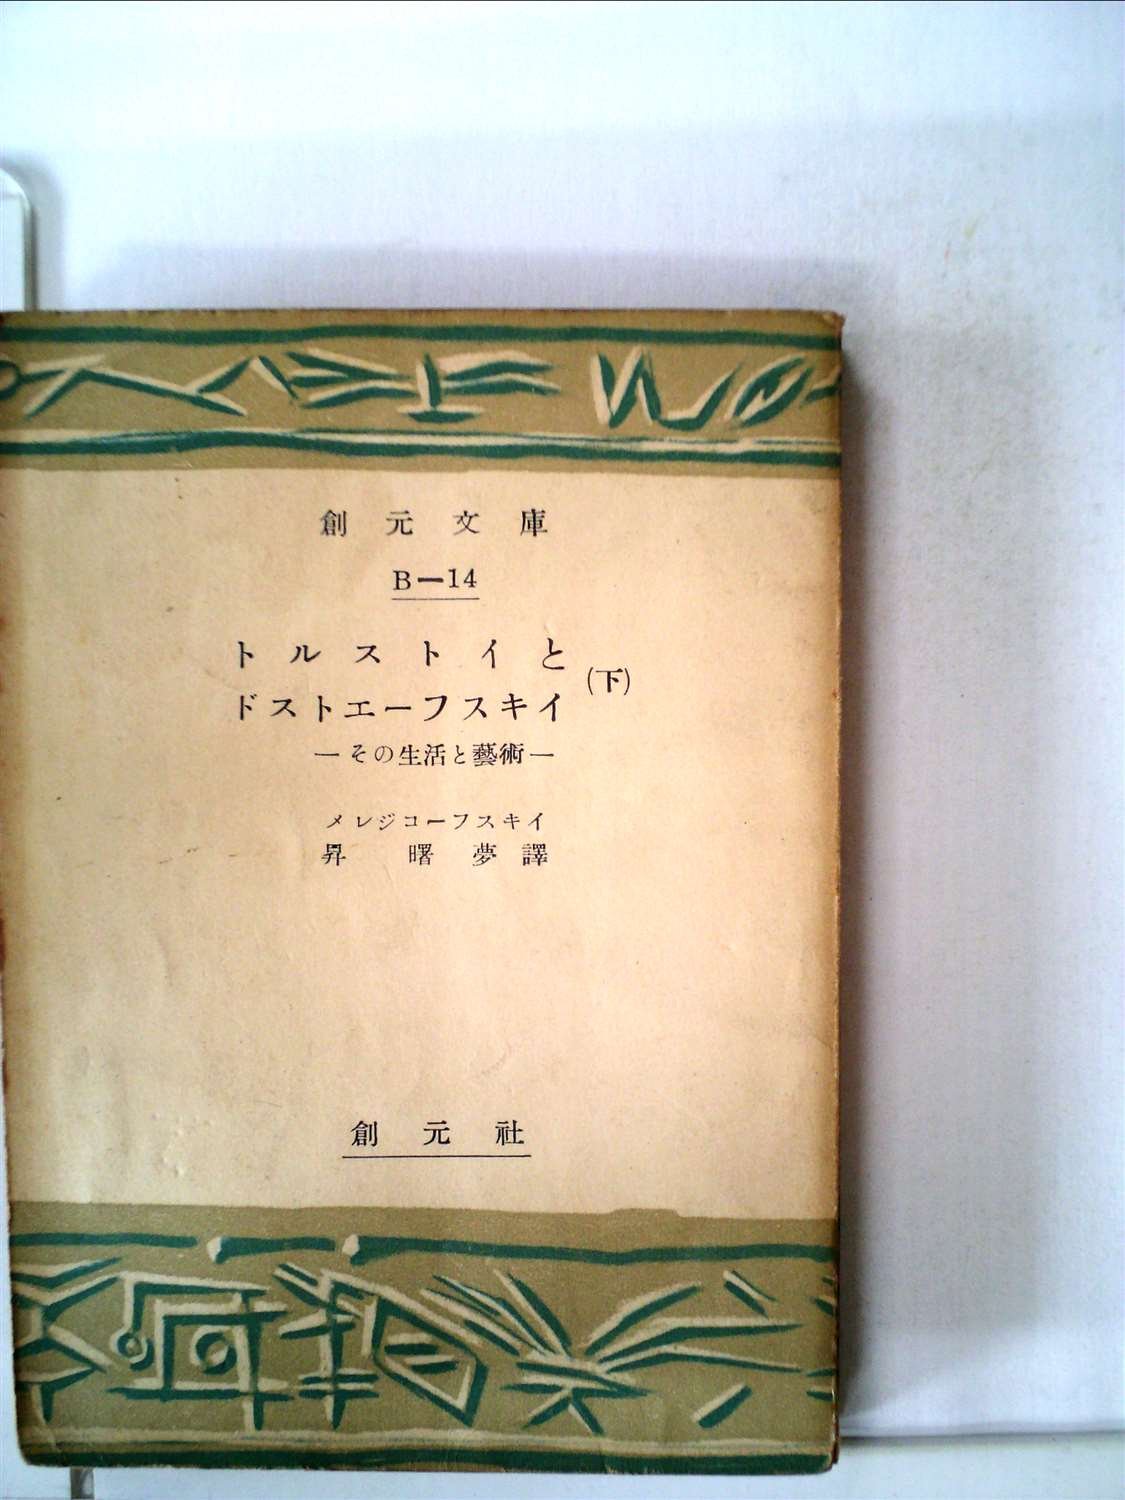 創元文庫
B—14
トルストイと
ドストエーフスキイ
(下)
—その生活と藝術—
メレジコーフスキイ
昇曙夢譯
創元社